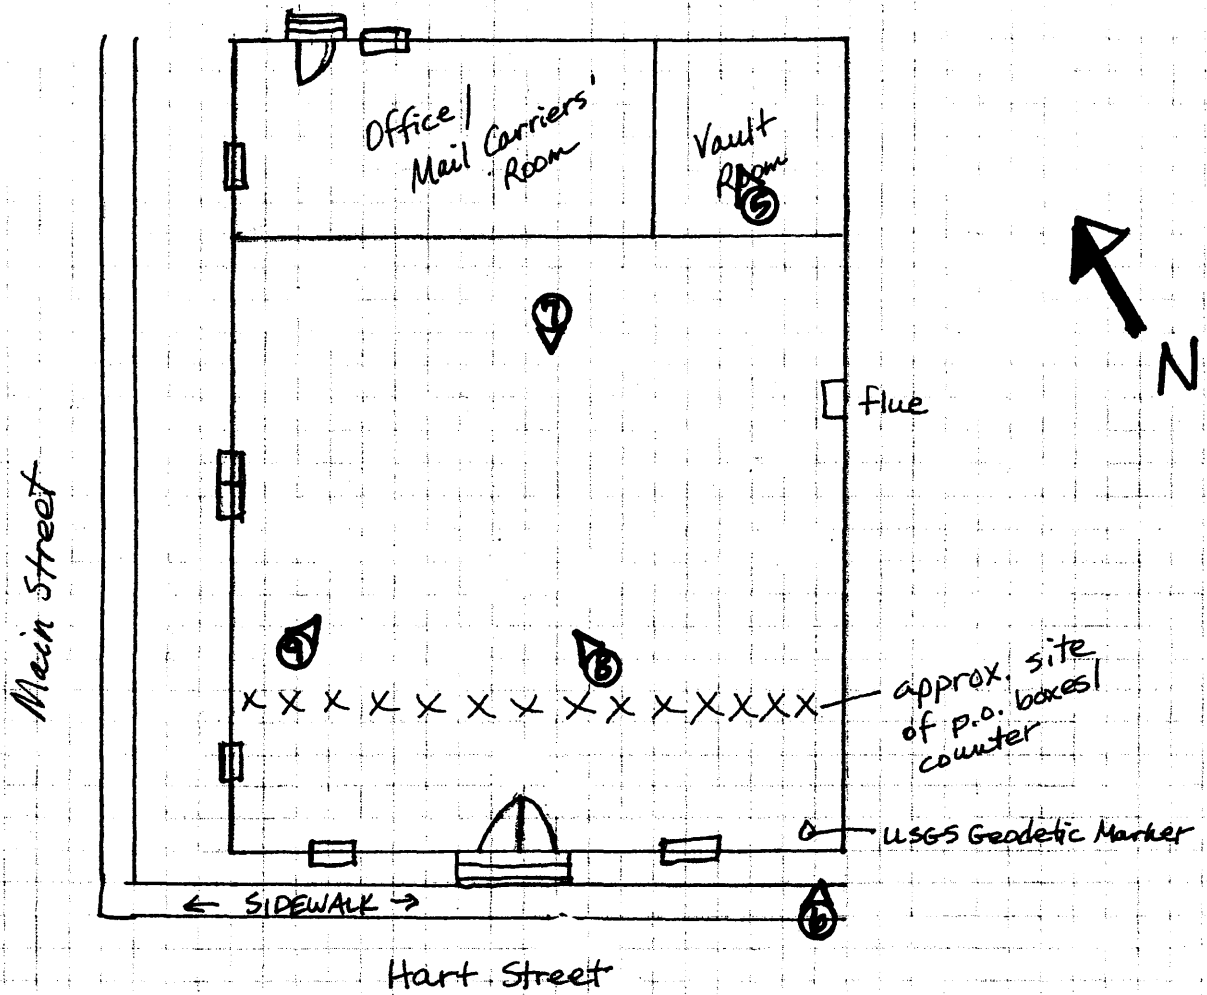 Office/
Mail Carriers'
Room
Vault
Room
5
7
N
flue
Main Street
9
8
approx. site
of p.o. boxes/
counter
USGS Geodetic Marker
← SIDEWALK →
6
Hart Street